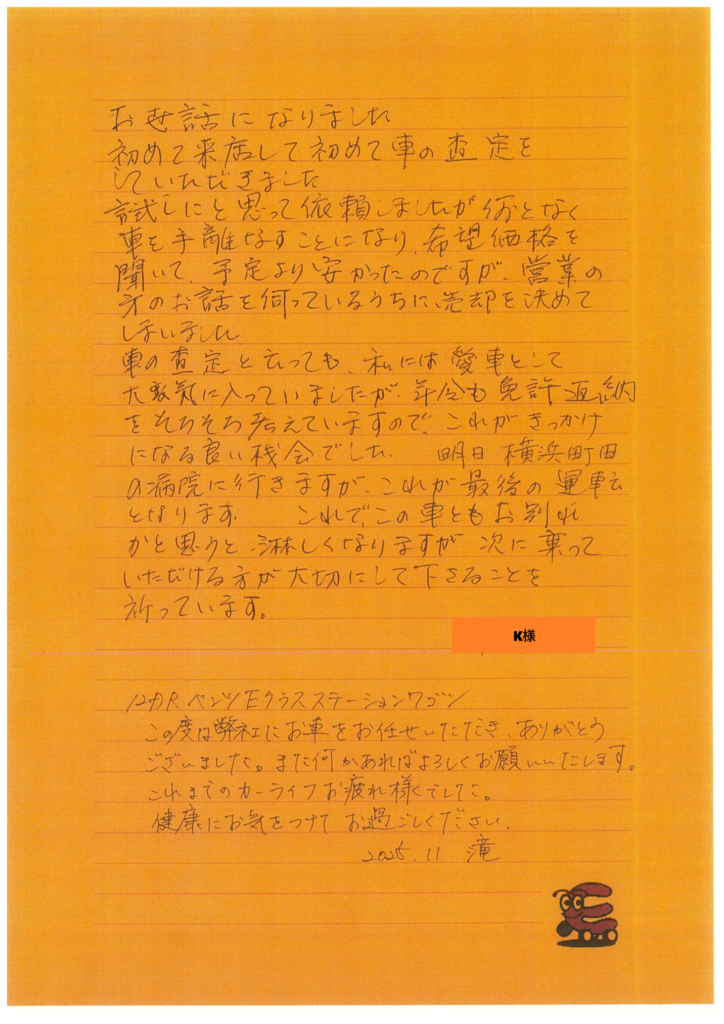 お世話になりました
初めて来店して初めて車の査定を
していただきました
試しにと思って依頼しましたが何となく
車を手離なすことになり、希望価格を
聞いて、予定より安かったのですが、営業の
方のお話を伺っているうちに、売却を決めて
しまいました
車の査定と云っても、私には愛車として
大変気に入っていましたが、年令も免許返納
をそろそろ考えていますので、これがきっかけ
になる良い機会でした。 明日横浜町田
の病院に行きますが、これが最後の運転
となります。 これで、この車ともお別れ
かと思うと、淋しくなりますが次に乗って
いただける方が大切にして下さることを
祈っています。
K様
ベンツEクラスステーションワゴン
この度は弊社にお車をお任せいただき、ありがとう
ございました。また何かあればよろしくお願いいたします。
これまでのカーライフお疲れ様でした。
健康にお気をつけてお過ごしください。
2025.11 滝